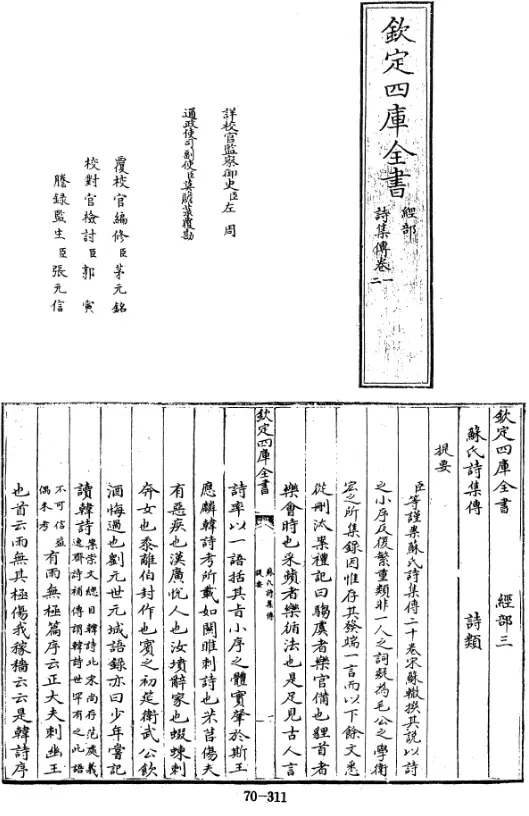 欽定四庫全書
經部
詩集傳卷一二
詳校官監察御史臣左周
通政使司副使臣莫瞻菉覆勘
覆校官編修臣茅元銘
校對官檢討臣郭寅
謄錄監生臣張元信
欽定四庫全書 經部三
蘇氏詩集傳 詩類
提要
臣等謹案蘇氏詩集傳二十卷宋蘇轍撰其說以詩
之小序反復繁重類非一人之詞疑為毛公之學衛
宏之所集錄因惟存其發端一言而以下餘文悉
從刪汰案禮記曰騶虞者樂官備也貍首者
樂會時也采蘋者樂循法也是足見古人言
欽定四庫全書
蘇氏詩集傳
提要
一
詩率以一語括其旨小序之體實肇於斯王
應麟韓詩考所載如關雎刺詩也芣苢傷夫
有惡疾也漢廣悅人也汝墳辭家也蝃蝀刺
奔女也黍離伯封作也賓之初筵衛武公飲
酒悔過也劉元世元城語錄亦曰少年嘗記
讀韓詩案崇文總目韓詩北宋尚存范處義
逸齋詩補傳謂韓詩世罕有之此語
不可信蓋
偶未考有雨無極篇序云正大夫刺幽王
也首云雨無其極傷我稼穡云云是韓詩序
70-311